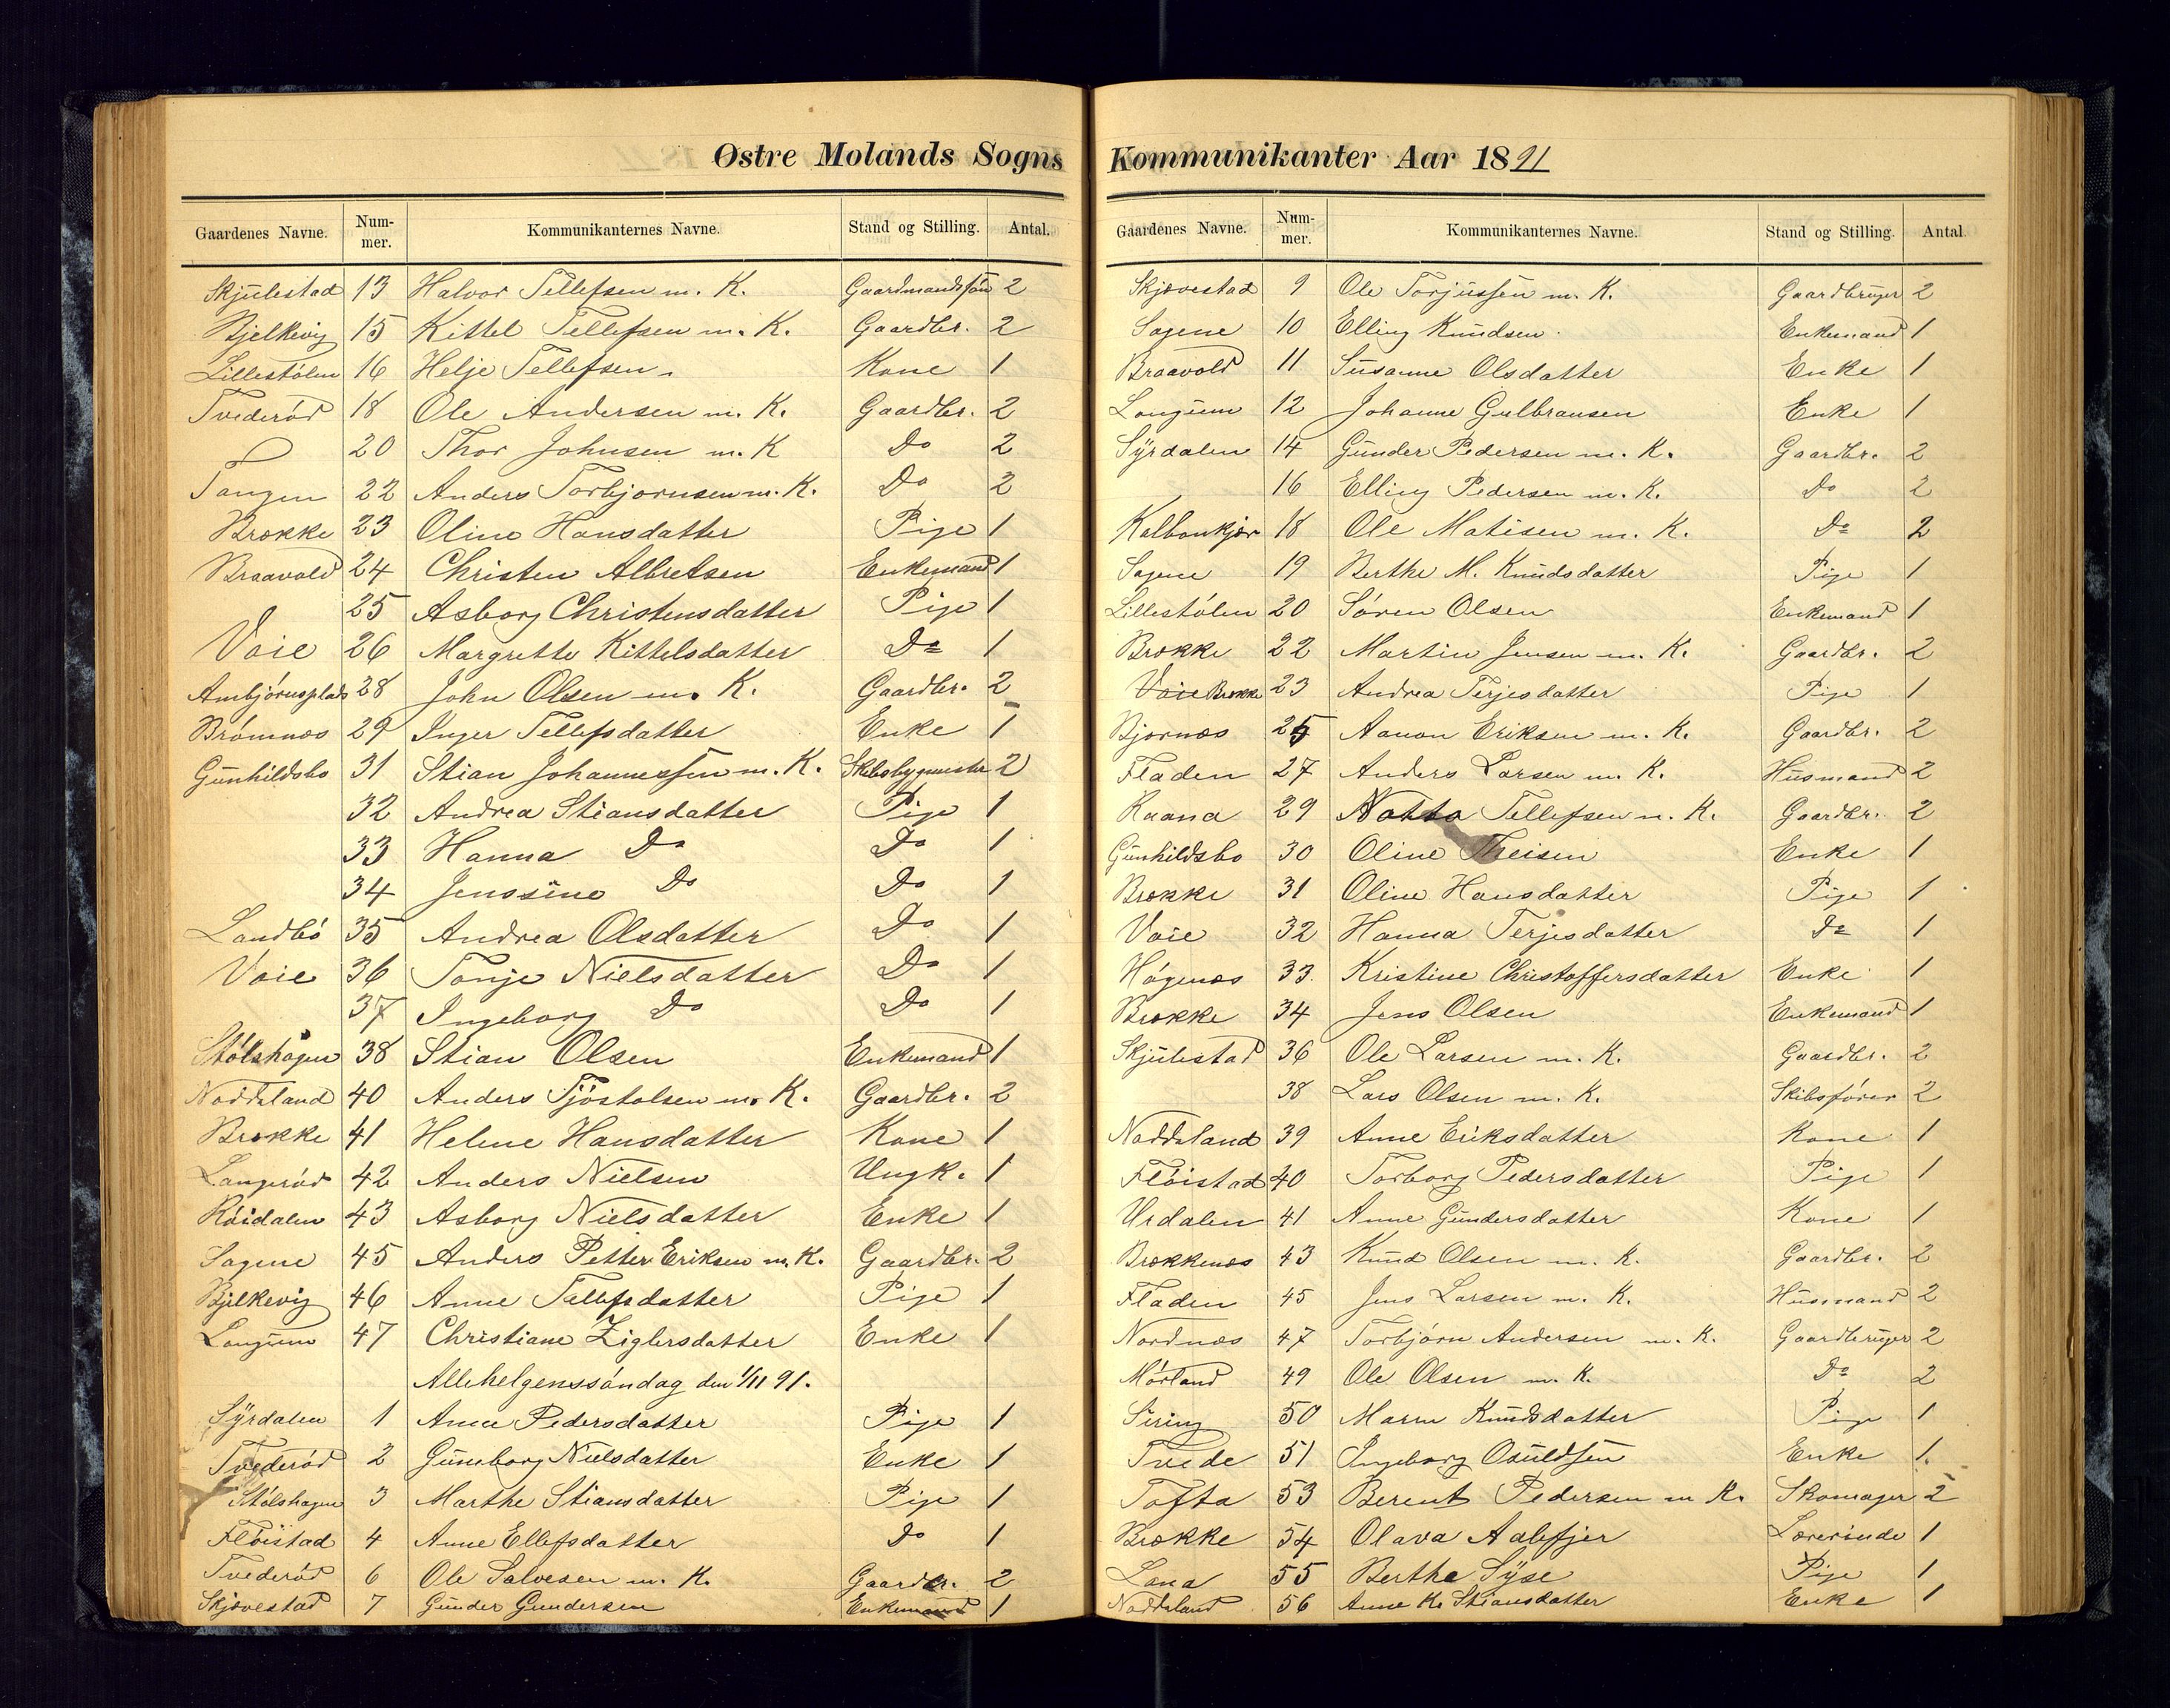 Østre Molands Sogns
Gaardenes Navne. Num-mer. Kommunikanternes Navne. Stand og Stilling. Antal.
Skjulestad 13 Halvor Tellefsen m. K. Gaardmandssøn 2
Bjelkevig 15 Kittel Tellefsen m. K. Gaardbr. 2
Lillestølen 16 Helje Tellefsen Kone 1
Tvederød 18 Ole Andersen m. K. Gaardbr. 2
20 Thor Johnsen m. K Do 2
Tangen 22 Anders Torbjørnsen m. K. Do 2
Brække 23 Oline Hansdatter Pige 1
Braavold 24 Christen Albretsen Enkemand 1
25 Asborg Christensdatter Pige 1
Voie 26 Margrette Kittelsdatter Do 1
Ambjørnsplads 28 John Olsen m. K. Gaardbr. 2
Brømnæs 29 Inger Tellefsdatter Enke 1
Gunhildsbo 31 Stian Johannessen m. K. Skibsbygmester 2
32 Andrea Stiansdatter Pige 1
33 Hanna Do Do 1
34 Jenssine Do Do 1
Landbø 35 Andrea Olsdatter Do 1
Voie 36 Tonje Nielsdatter Do 1
37 Ingeborg Do Do 1
Stølshagen 38 Stian Olsen Enkemand 1
Noddeland 40 Anders Tjøstolsen m. K. Gaardbr. 2
Brække 41 Helene Hansdatter Kone 1
Langerød 42 Anders Nielsen Ungk. 1
Røidalen 43 Asborg Nielsdatter Enke 1
Sagene 45 Anders Petter Eriksen m. K. Gaardbr. 2
Bjelkevig 46 Anne Tellefsdatter Pige 1
Langum 47 Christiane Ziglersdatter Enke 1
Allehelgenssøndag den 1/11 91.
Syrdalen 1 Anne Pedersdatter Pige 1
Tvederød 2 Guneborg Nielsdatter Enke 1
Stølshagen 3 Marthe Stiansdatter Pige 1
Fløistad 4 Anne Ellefsdatter Do 1
Tvederød 6 Ole Salvesen m. K. Gaardbr. 2
Skjævestad 7 Gunder Gundersen Enkemand 1
Kommunikanter Aar 1891
Gaardenes Navne. Num-mer. Kommunikanternes Navne. Stand og Stilling. Antal.
Skjævestad 9 Ole Torjussen m. K. Gaardbruger 2
Sagene 10 Elling Knudsen Enkemand 1
Braavold 11 Susanne Olsdatter Enke 1
Langum 12 Johanne Gulbransen Enke 1
Syrdalen 14 Gunder Pedersen m. K. Gaardbr. 2
16 Elling Pedersen m. K. Do 2
18 Ole Matisen m. K. Do 2
Sagene 19 Berthe M. Knudsdatter Pige 1
Lillestølen 20 Søren Olsen Enkemand 1
Brække 22 Martin Jensen m. K. Gaardbr. 2
Voie Brække 23 Andrea Terjesdatter Pige 1
Bjornæs 25 Aanon Eriksen m. K. Gaardbr. 2
Fladen 27 Anders Larsen m. K. Husmand 2
Raana 29 Notto Tellefsen m. K. Gaardbr. 2
Gunhildsbo 30 Oline Theisen Enke 1
Brække 31 Oline Hansdatter Pige 1
Voie 32 Hanna Terjesdatter Do 1
Høgenæs 33. Kristine Christoffersdatter Enke 1
Brække 34 Jens Olsen Enkemand 1
Skjulestad 36 Ole Larsen m. K. Gaardbr. 2
38 Lars Olsen m. K. Skibsfører 2
Noddeland 39 Anne Eriksdatter Kone 1
Fløistad 40 Torborg Pedersdatter Pige 1
Urdalen 41 Anne Gundersdatter Kone 1
Brækkenæs 43 Knud Olsen m. K. Gaardbr. 2
Fladen 45 Jens Larsen m. K. Husmand 2
Nordnæs 47 Torbjørn Andersen m. K. Gaardbruger 2
Mørland 49 Ole Olsen m. K. Do 2
Siring 50 Maren Knudsdatter Pige 1
Tvede 51 Ingeborg Osuldsen Enke 1.
Tofta 53 Berent Pedersen m K. Skomager 2
Brække 54 Olava Aalefjer Lærerinde 1
Lona 55 Berthe Syse Pige 1
Noddeland 56 Anne K. Stiansdatter Enke 1